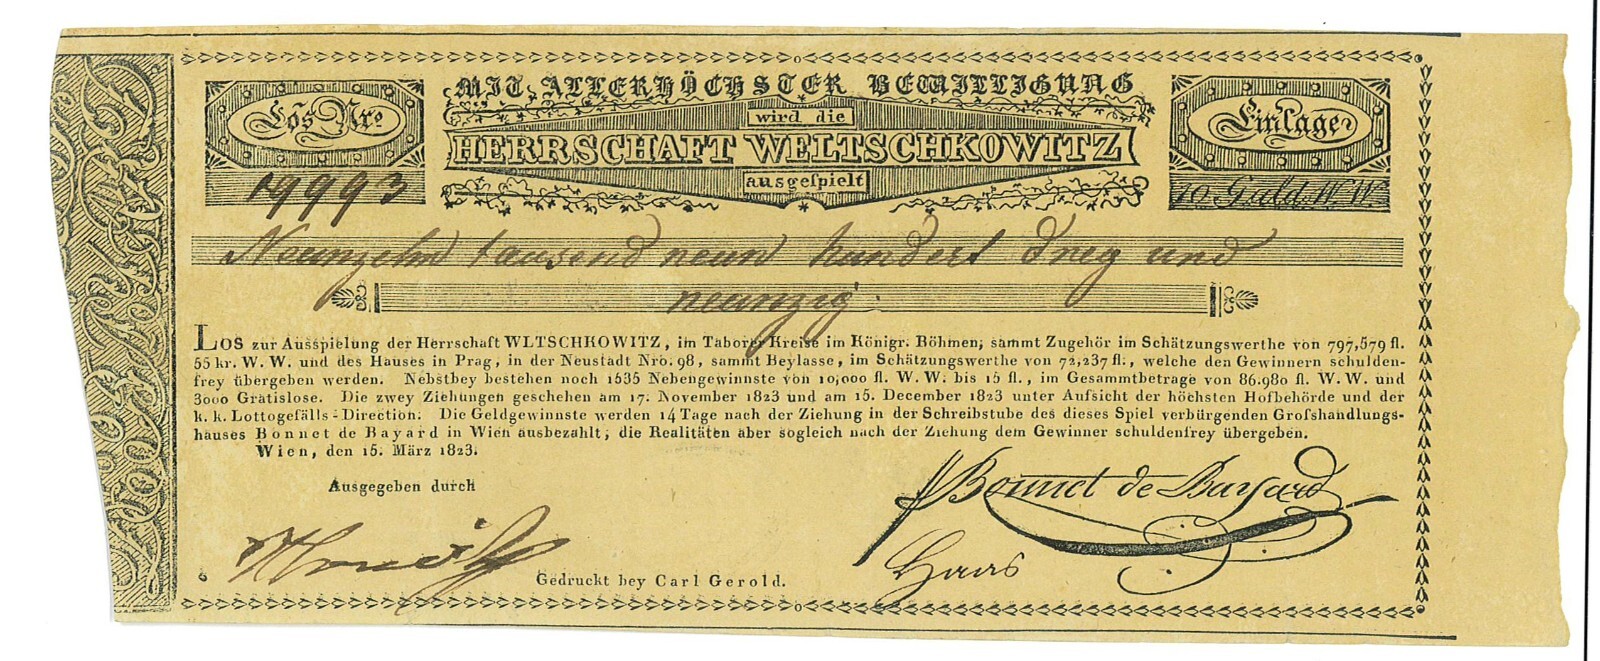 MIT ALLERHÖCHSTER BEWILLIGUNG
Los Nro.
wird die
Einlage
HERRSCHAFT WELTSCHKOWITZ
19993
ausgespielt
10 Guld W W
Neunzehn tausend neun hundert drey und
neunzig.
Los zur Ausspielung der Herrschaft WLTSCHKOWITZ, im Taborer Kreise im Königr. Böhmen, sammt Zugehör im Schätzungswerthe von 797,579 fl.
55 kr. W. W. und des Hauses in Prag, in der Neustadt Nro. 98, sammt Beylasse, im Schätzungswerthe von 72,237 fl., welche den Gewinnern schulden-
frey übergeben werden. Nebstbey bestehen noch 1535 Nebengewinnste von 10,000 fl. W. W. bis 15 fl., im Gesammtbetrage von 86.980 fl. W. W. und
3000 Gratislose. Die zwey Ziehungen geschehen am 17. November 1823 und am 15. December 1823 unter Aufsicht der höchsten Hofbehörde und der
k. k. Lottogefälls-Direction. Die Geldgewinnste werden 14 Tage nach der Ziehung in der Schreibstube des dieses Spiel verbürgenden Grosshandlungs-
hauses Bonnet de Bayard in Wien ausbezahlt; die Realitäten aber sogleich nach der Ziehung dem Gewinner schuldenfrey übergeben.
Wien, den 15. März 1823.
Ausgegeben durch
Bonnet de Bayard
Haas
Gedruckt bey Carl Gerold.